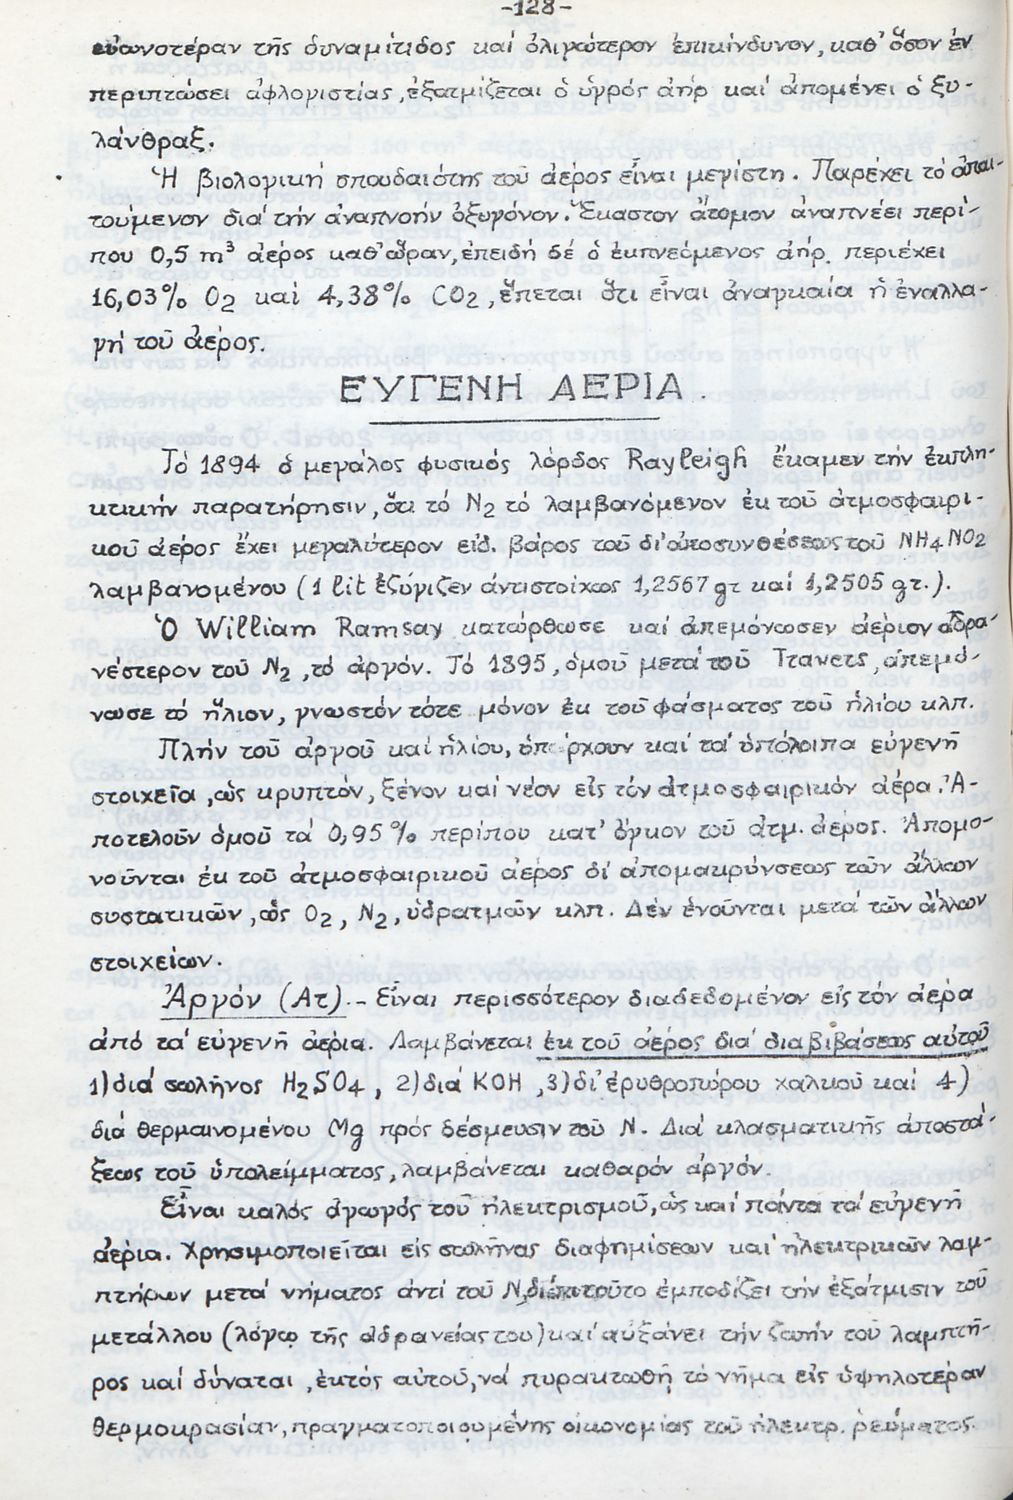 -128-
εὐωνοτέραν τῆς δυναμίτιδος καί ὀλιγώτερον ἐπικίνδυνον, καθ' ὅσον ἐν
περιπτώσει ἀφλογιστίας, ἐξατμίζεται ὁ ὑγρός ἀήρ καί ἀπομένει ὁ ξυ-
λάνθραξ.
Ἡ βιολογική σπουδαιότης τοῦ ἀέρος εἶναι μεγίστη. Παρέχει τό ἀπαι-
τούμενον διά τήν ἀναπνοήν ὀξυγόνον. Ἕκαστον ἄτομον ἀναπνέει περί-
που 0,5 m³ ἀέρος καθ' ὥραν, ἐπειδή δέ ὁ ἐκπνεόμενος ἀήρ. περιέχει
16,03% O2 καί 4,38% CO2, ἕπεται ὅτι εἶναι ἀναγκαία ἡ ἐναλλα-
γή τοῦ ἀέρος.
ΕΥΓΕΝΗ ΑΕΡΙΑ.
Τό 1894 ὁ μεγάλος φυσικός λόρδος Rayleigh ἔκαμεν τήν ἐκπλη-
κτικήν παρατήρησιν, ὅτι τό N2 τό λαμβανόμενον ἐκ τοῦ ἀτμοσφαιρι-
κοῦ ἀέρος ἔχει μεγαλύτερον εἰδ. βάρος τοῦ δι' ἀποσυνθέσεως τοῦ NH4NO2
λαμβανομένου (1 lit ἐζύγιζεν ἀντιστοίχως 1,2567 gr καί 1,2505 gr.).
Ὁ William Ramsay κατώρθωσε καί ἀπεμόνωσεν ἀέριον ἀδρα-
νέστερον τοῦ N2, τό ἀργόν. Τό 1895, ὁμου μετά τοῦ Travers, ἀπεμό-
νωσε τό ἥλιον, γνωστόν τότε μόνον ἐκ τοῦ φάσματος τοῦ ἡλίου κλπ.
Πλήν τοῦ ἀργοῦ καί ἡλίου, ὑπάρχουν καί τά ὑπόλοιπα εὐγενῆ
στοιχεῖα, ὡς κρυπτόν, ξένον καί νέον εἰς τόν ἀτμοσφαιρικόν ἀέρα. Ἀ-
ποτελοῦν ὁμοῦ τά 0,95% περίπου κατ' ὄγκον τοῦ ἀτμ. ἀέρος. Ἀπομο-
νοῦνται ἐκ τοῦ ἀτμοσφαιρικοῦ ἀέρος δι' ἀπομακρύνσεως τῶν ἄλλων
συστατικῶν, ὡς O2, N2, ὑδρατμῶν κλπ. Δέν ἑνοῦνται μετά τῶν ἄλλων
στοιχείων.
Ἀργόν (Ar).- Εἶναι περισσότερον διαδεδομένον εἰς τόν ἀέρα
ἀπό τά εὐγενῆ ἀέρια. Λαμβάνεται ἐκ τοῦ ἀέρος διά διαβιβάσεως αὐτοῦ
1) διά σωλῆνος H2SO4, 2) διά KOH, 3) δι' ἐρυθροπύρου χαλκοῦ καί 4)
διά θερμαινομένου Mg πρός δέσμευσιν τοῦ N. Διά κλασματικῆς ἀποστά-
ξεως τοῦ ὑπολείμματος, λαμβάνεται καθαρόν ἀργόν.
Εἶναι καλός ἀγωγός τοῦ ἠλεκτρισμοῦ, ὡς καί πάντα τά εὐγενῆ
ἀέρια. Χρησιμοποιεῖται εἰς σωλῆνας διαφημίσεων καί ἠλεκτρικῶν λαμ-
πτήρων μετά νήματος ἀντί τοῦ N, διότι τοῦτο ἐμποδίζει τήν ἐξάτμισιν τοῦ
μετάλλου (λόγω τῆς ἀδρανείας του) καί αὐξάνει τήν ζωήν τοῦ λαμπτῆ-
ρος καί δύναται, ἐκτός αὐτοῦ, νά πυρακτωθῇ τό νῆμα εἰς ὑψηλοτέραν
θερμοκρασίαν, πραγματοποιουμένης οἰκονομίας τοῦ ἠλεκτρ. ῥεύματος.